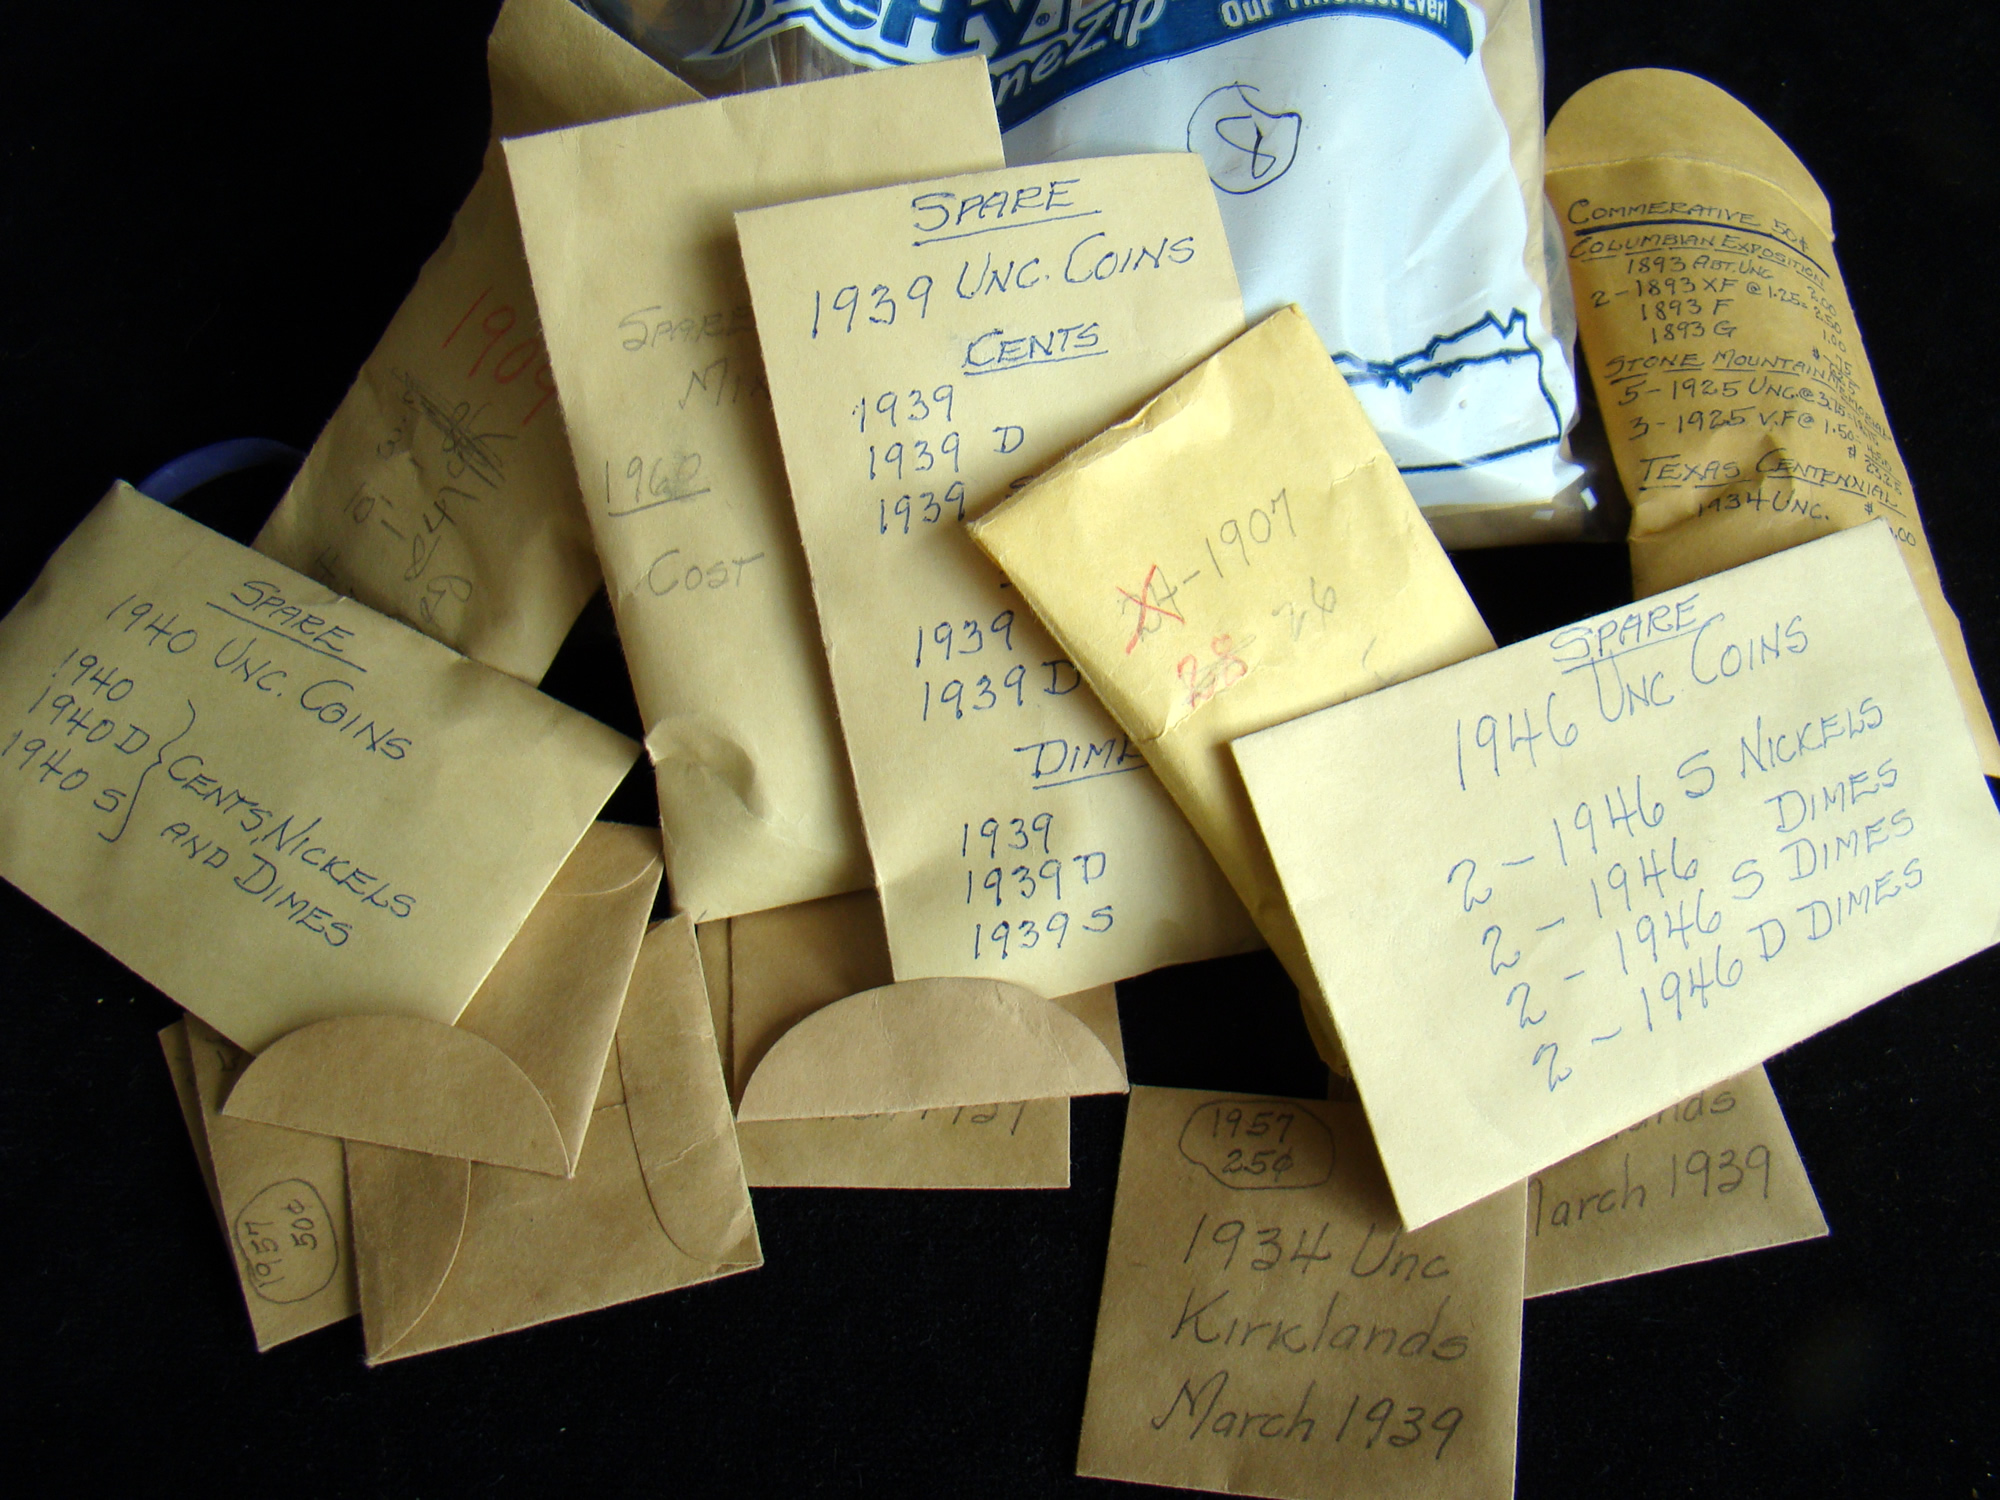 Our Thickest Ever!
8
SPARE
1939 UNC. COINS
CENTS
1939
1939 D
1939
1939
1939 D
DIME
1939
1939 D
1939 S
COMMERATIVE 50¢
COLUMBIAN EXPOSITION
1893 ABT. UNC 2.00
2-1893 XF @ 1.25 = 2.50
1893 F 1.00
1893 G
STONE MOUNTAIN
5-1925 UNC. @ 3.75
3-1925 V.F @ 1.50
TEXAS CENTENNIAL
1934 UNC.
1909
SPARE
MIN
1960
COST
24-1907
28 26
SPARE
1940 UNC. COINS
1940
1940 D
1940 S
CENTS, NICKELS
AND DIMES
SPARE
1946 UNC COINS
2-1946 S NICKELS
2-1946 DIMES
2-1946 S DIMES
2-1946 D DIMES
1957
50¢
1957
25¢
1934 Unc
Kirklands
March 1939
lands
March 1939